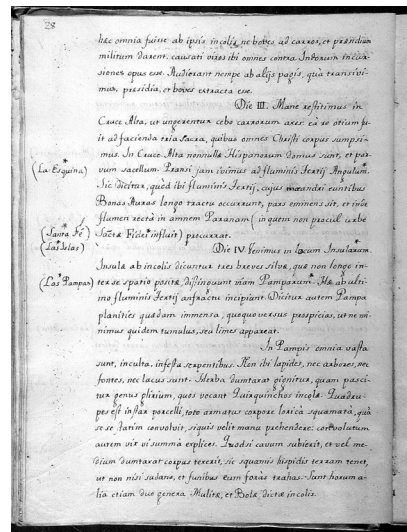 28
hæc omnia fuisse ab ipsis incolis, ne boves ad carros, et præsidium
militum darent, causati viros ibi omnes contra Indorum incur-
siones opus esse. Audierant nempe ab alijs pagis, quà transivi-
mus, præsidia, et boves extracta esse.
Die III. Mane restitimus in
Cruce Alta, ut ungerentur cebo carrorum axes. eâ re otium fu-
it ad facienda tria sacra, quibus omnes Christi corpus sumpsi-
mus. In Cruce Alta nonnullæ Hispanorum domus sunt, et par-
vum sacellum. Transi jam ivimus ad fluminis Tertij Angulum.*
(La Esquina)
Sic dicitur, quod ibi fluminis Tertij, cujus mæandri euntibus
Bonas Auras longo tractu occurrunt, pars eminens sit, et inde
flumen rectà in amnem Paranam (in quem non procul urbe
(Santa Fè)
Sactæ Fidei* influit) procurrat.
(Las Islas)
Die IV. Venimus in locum Insularum*
Insulæ ab incolis dicuntur tres breves silvæ, quæ non longo in-
(Las Pampas)
ter se spatio positæ, distinguunt viam Pamparum.* Hæ ab ulti-
mo fluminis Tertij anfractu incipiunt. Dicitur autem Pampa
planities quædam immensa, quoquoversus prospicias, ut ne mi-
nimus quidem tumulus, seu limes appareat.
In Pampis omnia vasta
sunt, inculta, infesta serpentibus. Non ibi lapides, nec arbores, nec
fontes, nec lacus sunt. Herba dumtaxat gignitur, quam pasci-
tur genus plurium, quos vocant Quirquinchos incolæ. Quadru-
pes est instar porcelli, toto armatus corpore loricâ squamatâ, quâ
se se statim convolvit, siquis velit manu prehendere; convolutum
autem vix vi summâ explices. Quodsi cavum subierit, et vel me-
dium dumtaxat corpus texerit, sic squamis hispidis terram tenet,
ut non nisi sudans, et funibus eum foràs trahas. Sunt horum a-
lia etiam duo genera Mulitæ, et Bolæ dictæ incolis.